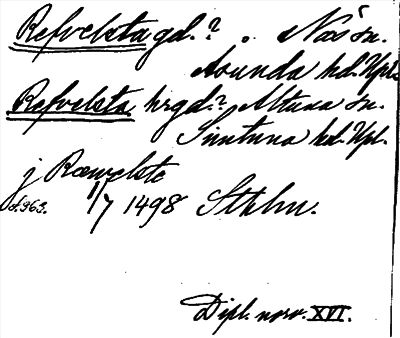 Refvelsta gd.? . Näs sn.
Asunda hd. Upl.
Refvelsta hrgd.? Altuna sn.
Simtuna hd. Upl.
j Ræwelste
d. 963. 17/11 1498 Sthlm.
Dipl. norv. XVI.